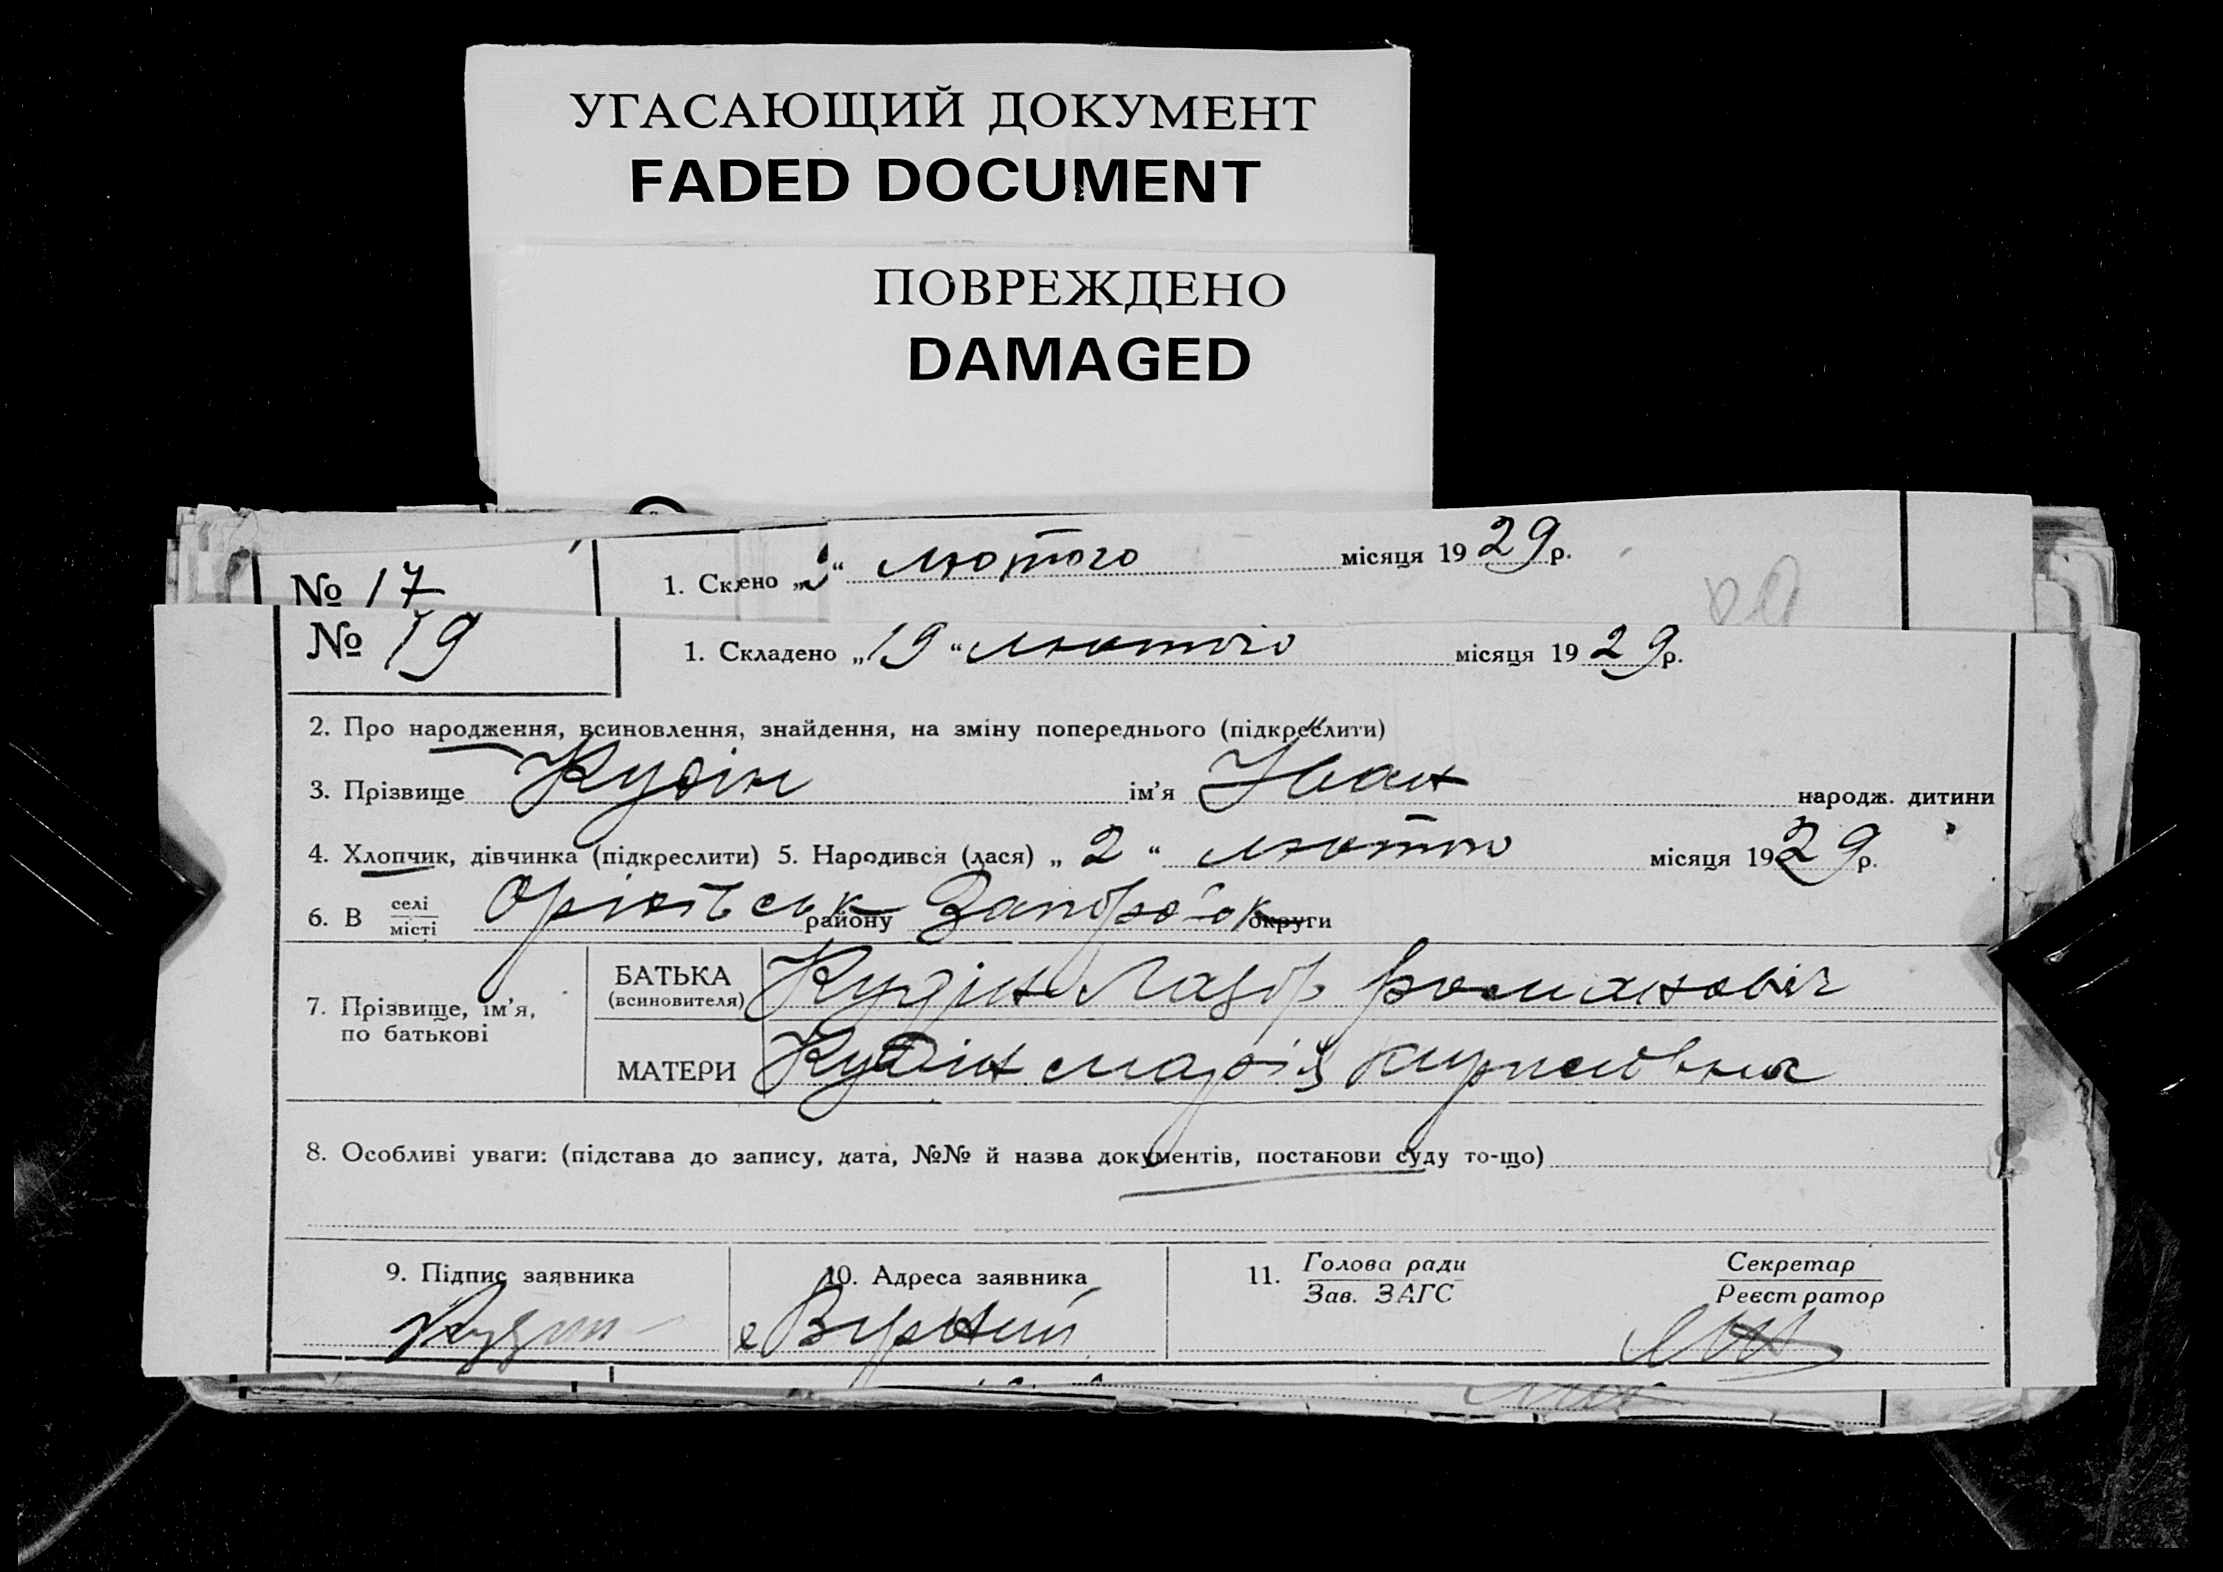 УГАСАЮЩИЙ ДОКУМЕНТ
FADED DOCUMENT
ПОВРЕЖДЕНО
DAMAGED
№ 17
лютого місяця 1929 р.
№ 19
1. Складено „19“ лютого місяця 1929 р.
2. Про народження, всиновлення, знайдення, на зміну попереднього (підкреслити)
3. Прізвище Кудін ім'я Іван народж. дитини
4. Хлопчик, дівчинка (підкреслити) 5. Народився (лася) „2“ лютого місяця 1929 р.
6. В селі місті Оріхівськ району Запоріз'к округи
7. Прізвище, ім'я, по батькові
БАТЬКА (всиновителя) Кудін Лазор Романовіч
МАТЕРИ Кудін Марія
8. Особливі уваги: (підстава до запису, дата, №№ й назва документів, постанови суду то-що)
9. Підпис заявника
10. Адреса заявника
11. Голова ради
Зав. ЗАГС
Секретар
Реєстратор
Кудин